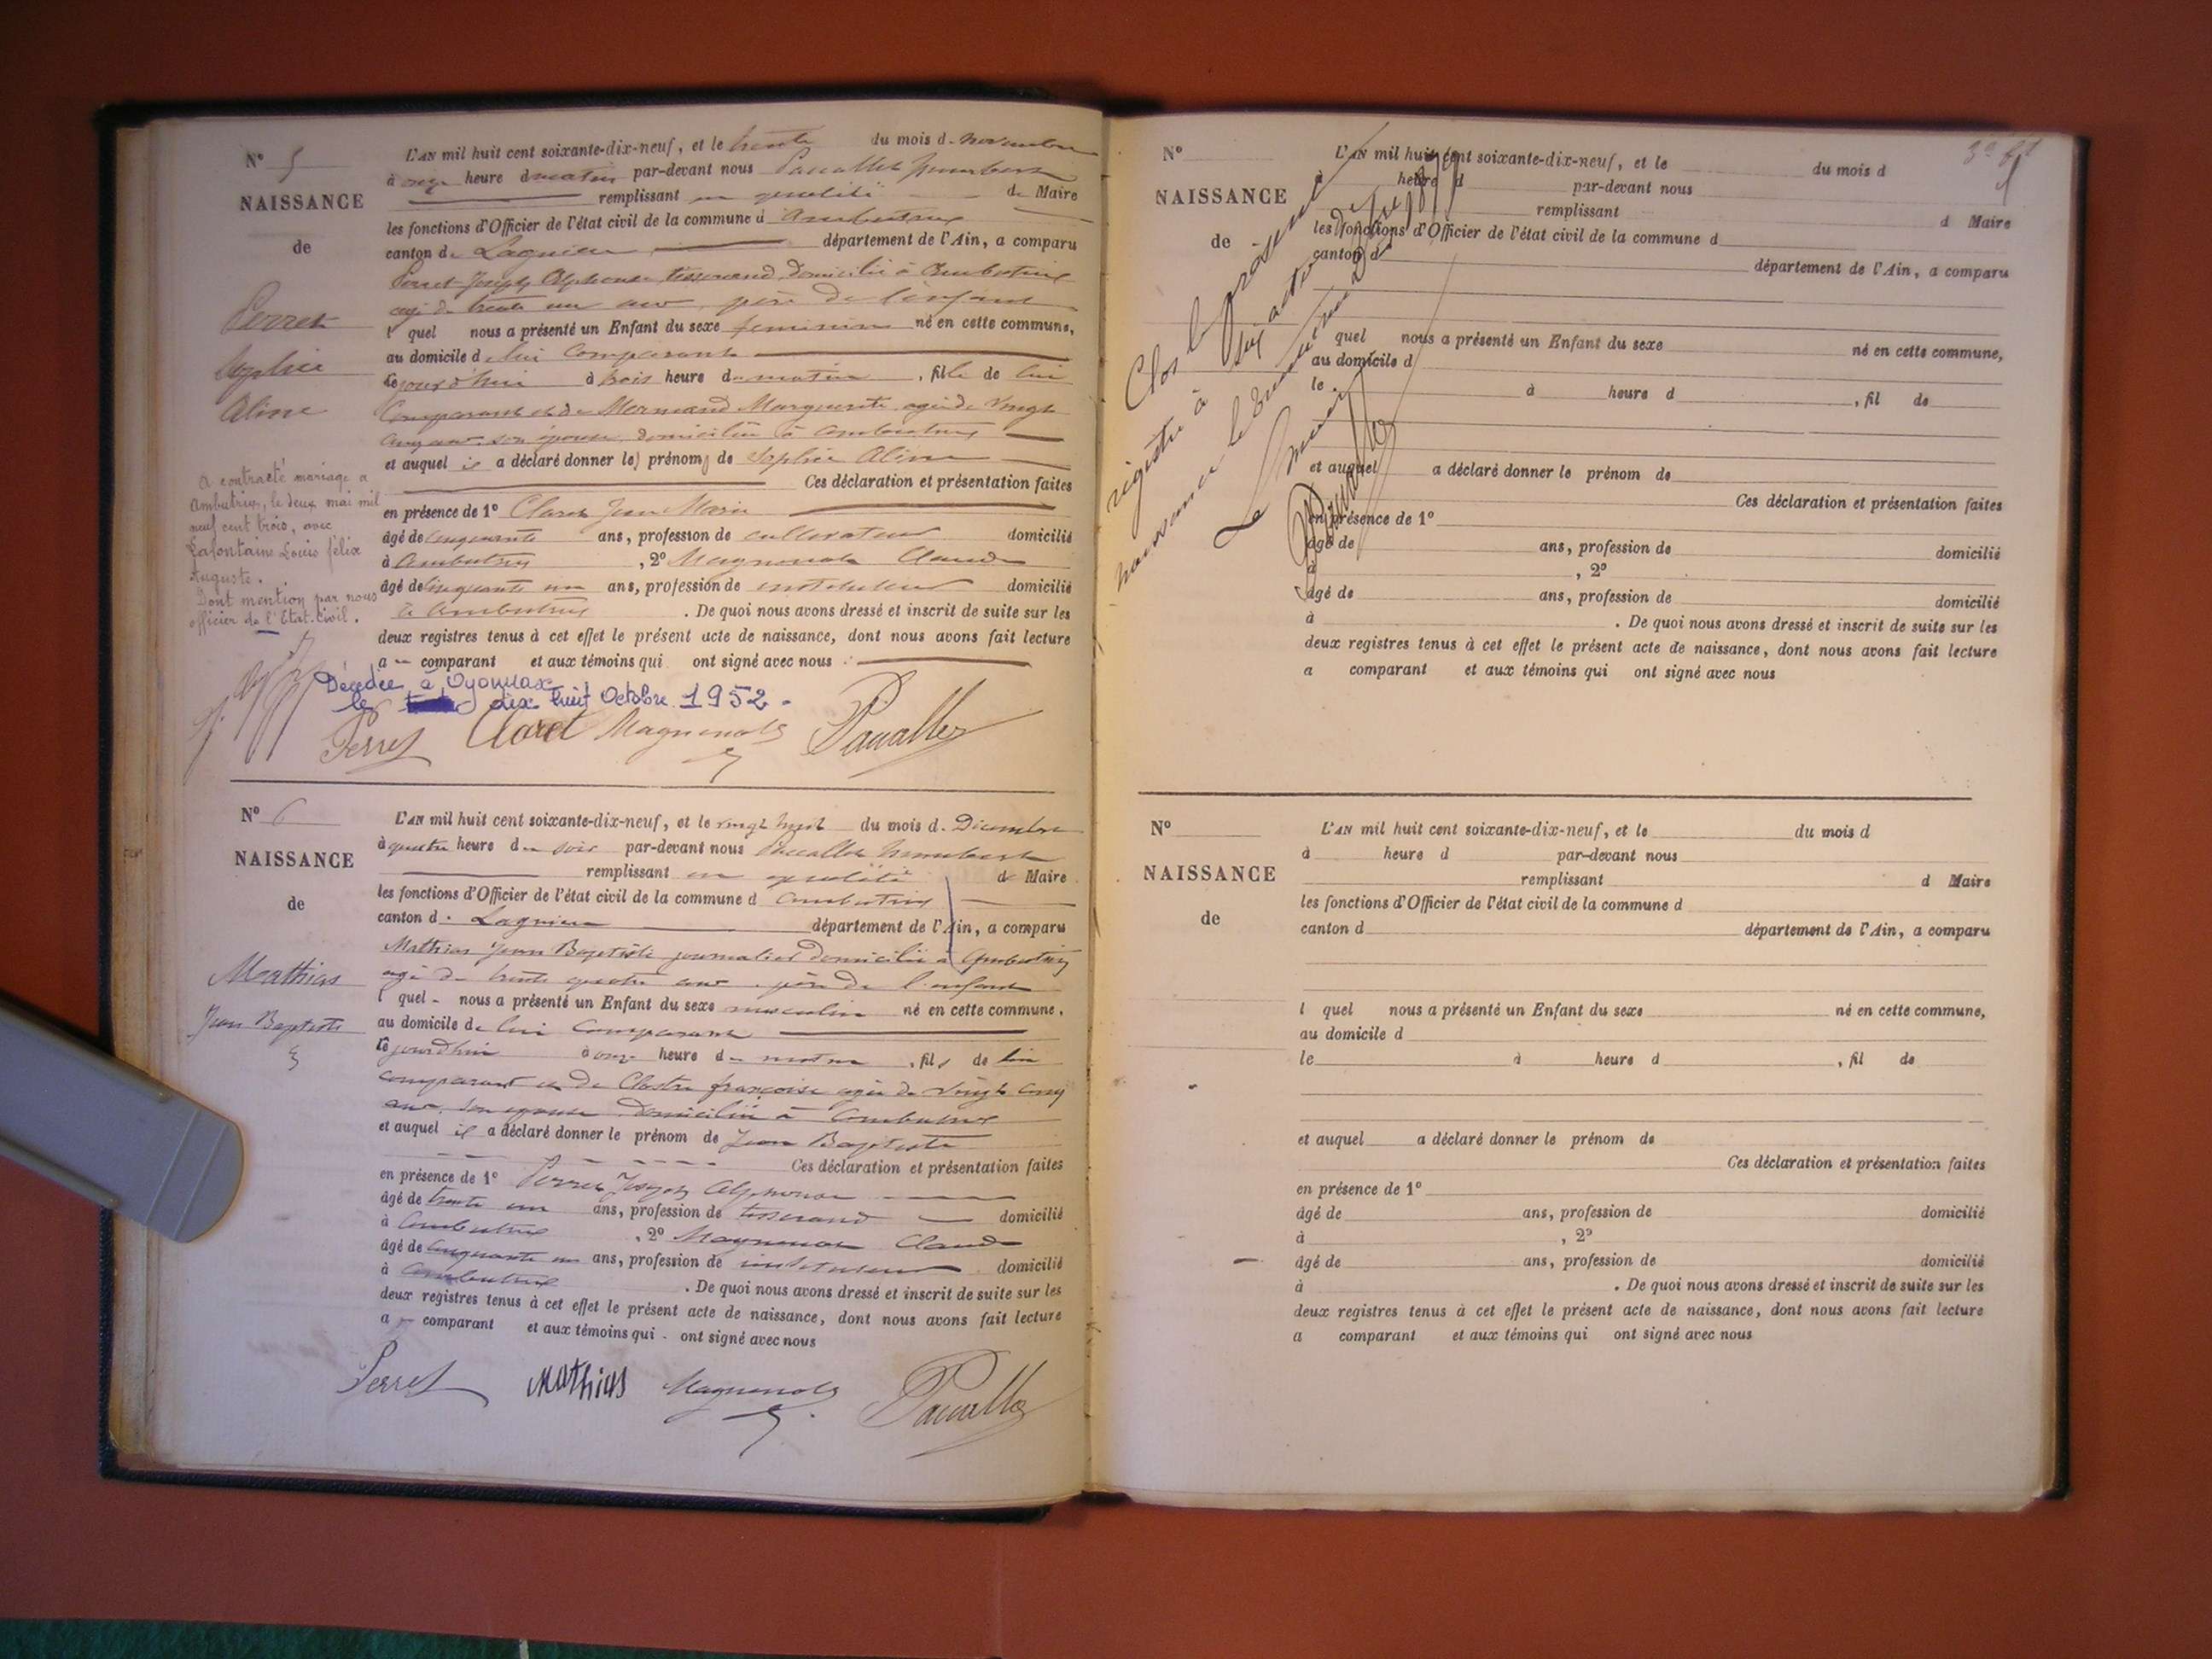 N° 5
NAISSANCE
de
Perret
Sophie
Aline
A contracté mariage a
Ambutrix, le deux mai mil
neuf cent trois, avec
Lafontaine Louis félix
Auguste.
Dont mention par nous
officier de l'Etat-Civil.
L'AN mil huit cent soixante-dix-neuf, et le trente du mois d. novembre
à onze heure du matin par-devant nous Pauallet humbert
remplissant en qualité de Maire
les fonctions d'Officier de l'état civil de la commune d Ambutrix
canton de Lagnieu département de l'Ain, a comparu
Perret Joseph Alphonse tisserand domicilié à Ambutrix
agé de trente un ans, père de l'enfant
l quel nous a présenté un Enfant du sexe feminin né en cette commune,
au domicile de lui comparant
le jourd'hui à trois heure du matin, fille de lui
Comparant et de Mermand Marguerite agée de vingt
cinq ans son épouse domiciliée à Ambutrix
et auquel il a déclaré donner les prénoms de Sophie Aline
Ces déclaration et présentation faites
en présence de 1° Claret Jean Marie
âgé de cinquante ans, profession de cultivateur domicilié
à Ambutrix, 2° Magnenot Claude
âgé de cinquante un ans, profession de instituteur domicilié
à Ambutrix. De quoi nous avons dressé et inscrit de suite sur les
deux registres tenus à cet effet le présent acte de naissance, dont nous avons fait lecture
a comparant et aux témoins qui ont signé avec nous
Décédée à Oyonnax
le dix huit Octobre 1952 -
Perret Claret Magnenot Pauallet
N° 6
NAISSANCE
de
Mathias
Jean Baptiste
L'AN mil huit cent soixante-dix-neuf, et le vingt huit du mois d. Décembre
à quatre heure du soir par-devant nous Pauallet humbert
remplissant en qualité de Maire
les fonctions d'Officier de l'état civil de la commune d Ambutrix
canton d. Lagnieu département de l'Ain, a comparu
Mathias Jean Baptiste journalier domicilié à Ambutrix
agé de trente quatre ans père de l'enfant
l quel nous a présenté un Enfant du sexe masculin né en cette commune,
au domicile de lui comparant
le jourd'hui à onze heure du matin, fils de lui
comparant et de Clostre françoise agée de vingt cinq
ans, son epouse domiciliée à Ambutrix
et auquel il a déclaré donner le prénom de Jean Baptiste
Ces déclaration et présentation faites
en présence de 1° Perret Joseph Alphonse
âgé de trente un ans, profession de tisserand domicilié
à Ambutrix, 2° Magnenot Claude
âgé de cinquante un ans, profession de instituteur domicilié
à Ambutrix. De quoi nous avons dressé et inscrit de suite sur les
deux registres tenus à cet effet le présent acte de naissance, dont nous avons fait lecture
a comparant et aux témoins qui ont signé avec nous
Perret Mathias Magnenot Pauallet
N°
NAISSANCE
de
L'AN mil huit cent soixante-dix-neuf, et le du mois d
à heure d par-devant nous
remplissant d Maire
les fonctions d'Officier de l'état civil de la commune d
canton d département de l'Ain, a comparu
l quel nous a présenté un Enfant du sexe né en cette commune,
au domicile d
le à heure d, fil de
et auquel a déclaré donner le prénom de
Ces déclaration et présentation faites
en présence de 1°
âgé de ans, profession de domicilié
à, 2°
âgé de ans, profession de domicilié
à. De quoi nous avons dressé et inscrit de suite sur les
deux registres tenus à cet effet le présent acte de naissance, dont nous avons fait lecture
a comparant et aux témoins qui ont signé avec nous
Clos le présent
registre à six actes de
naissance le 31 1879
Le Maire
Pauallet
N°
NAISSANCE
de
L'AN mil huit cent soixante-dix-neuf, et le du mois d
à heure d par-devant nous
remplissant d Maire
les fonctions d'Officier de l'état civil de la commune d
canton d département de l'Ain, a comparu
l quel nous a présenté un Enfant du sexe né en cette commune,
au domicile d
le à heure d, fil de
et auquel a déclaré donner le prénom de
Ces déclaration et présentation faites
en présence de 1°
âgé de ans, profession de domicilié
à, 2°
âgé de ans, profession de domicilié
à. De quoi nous avons dressé et inscrit de suite sur les
deux registres tenus à cet effet le présent acte de naissance, dont nous avons fait lecture
a comparant et aux témoins qui ont signé avec nous